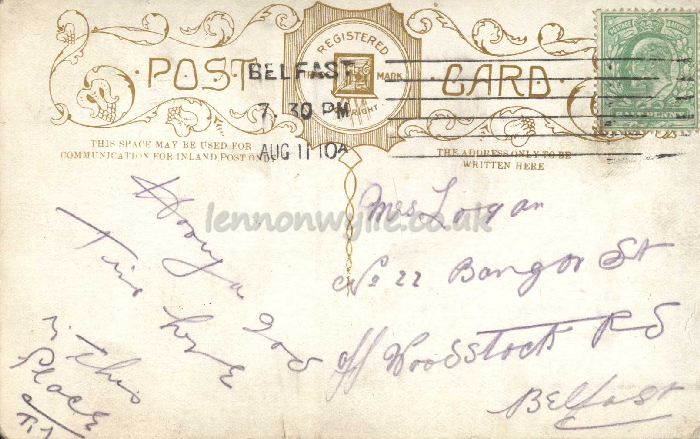 POST CARD
REGISTERED
TRADE MARK
COPYRIGHT
BELFAST
7. 30 PM
AUG 11 10A
POSTAGE
HALFPENNY
THIS SPACE MAY BE USED FOR
COMMUNICATION FOR INLAND POST ONLY
THE ADDRESS ONLY TO BE
WRITTEN HERE
lennonwylie.co.uk
Having a Good
Time here
in this
Place
Mrs Logan
No 22 Bangor St
off Woodstock Rd
Belfast